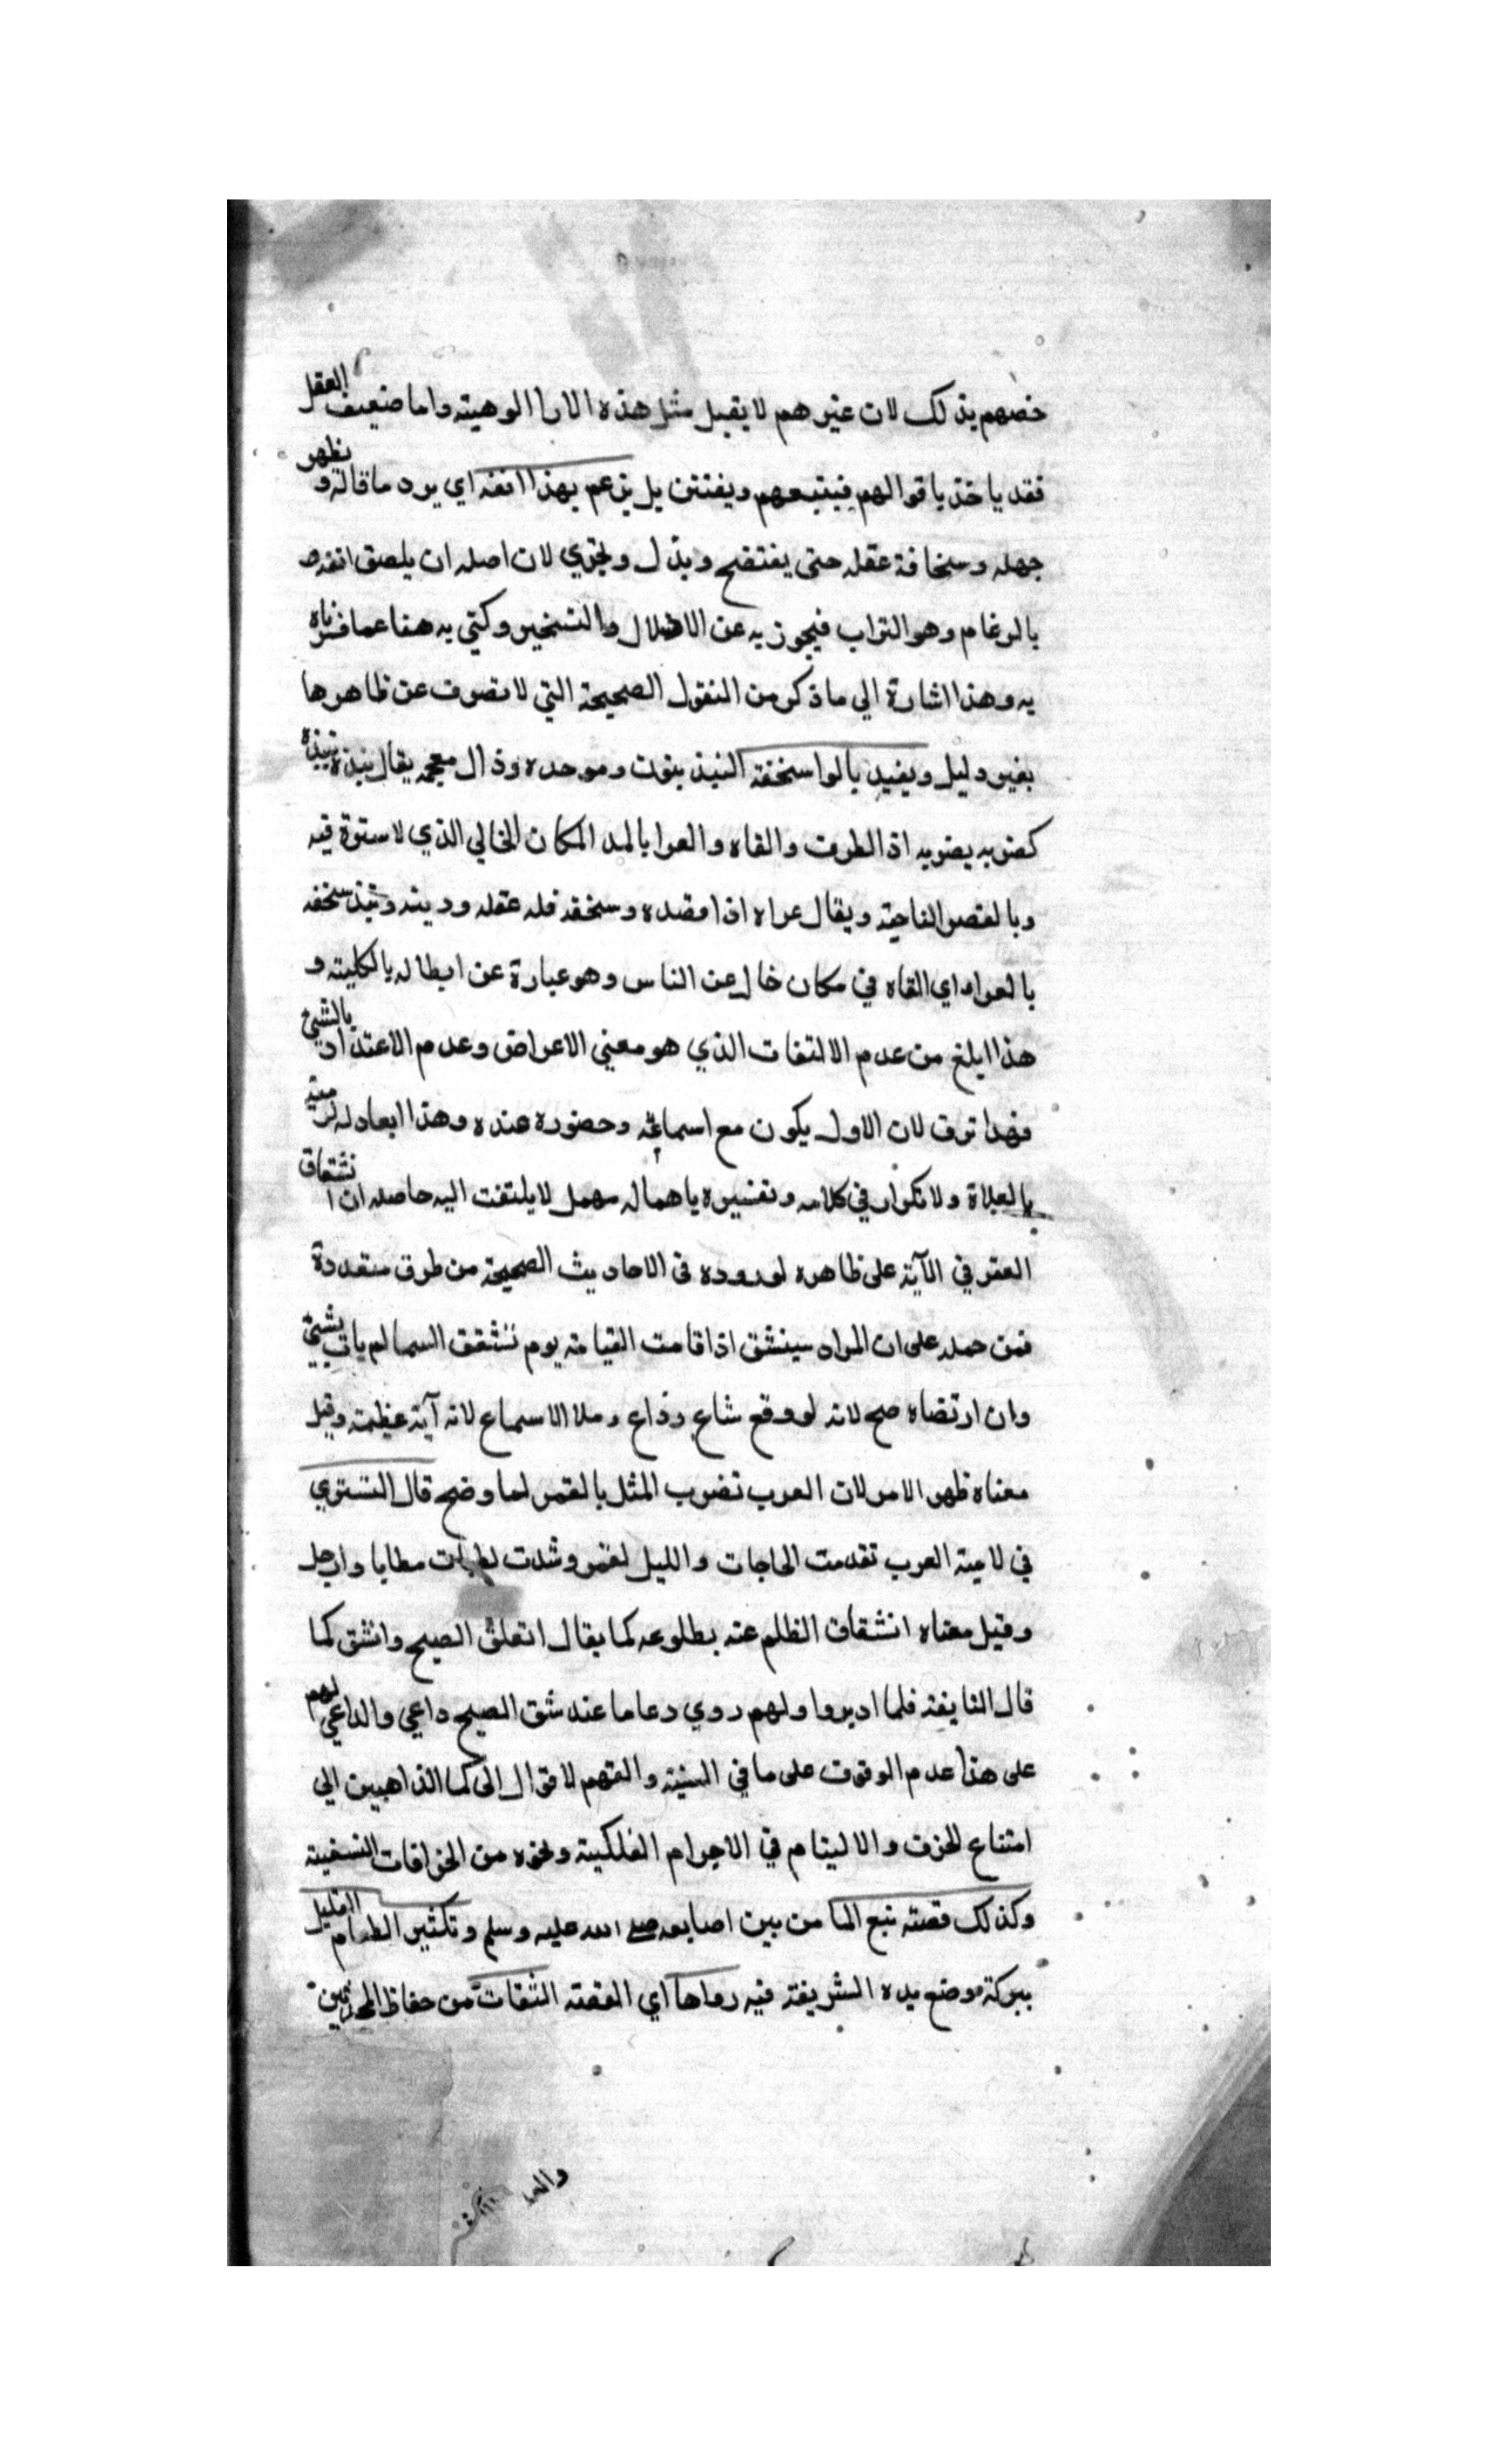 خصهم بذلك لان غيرهم لا يقبل مثل هذه الارا الوهية واما ضعيف العقل
فقد ياخذ باقوالهم فيتبعهم ويفتتن بل يزعم بهذا انفه اي يرد ما قاله ويظهر
جهله وسخافة عقله حتى يفتضح ويذل ويخزي لان اصله ان يلصق انفه
بالرغام وهو التراب فيجوز به عن الاذلال والتسخير وكني به هنا عما فسرناه
به وهذا اشارة الي ما ذكر من النقول الصحيحة التي لا تصرف عن ظاهرها
بغير دليل وينبذ بالعرا سخفه النبذ بنون وموحده وذال معجمه يقال نبذه ينبذه
كضربه يضربه اذا طرحه والقاه والعرا بالمد المكان الخالي الذي لا سترة فيه
وبالقصر الناحية ويقال عراه اذا قصده وسخفه قلة عقله ودينه ونبذ سخفه
بالعراء اي القاه في مكان خال عن الناس وهو عبارة عن ابطاله بالكلية و
هذا ابلغ من عدم الالتفات الذي هو معني الاعراض وعدم الاعتداد بالشئ
فهذا ترق لان الاول يكون مع اسماعه وحضوره عنده وهذا ابعاد له
ولا تكرار في كلامه وتفسيره باهماله مهمل لا يلتفت اليه حاصله ان انشقاق
القمر في الآية على ظاهره لوروده في الاحاديث الصحيحة من طرق متعددة
فمن حمله على ان المراد سينشق اذا قامت القيامة يوم تنشقق السما لم يات بشئ
وان ارتضاه صح لانه لو وقع شاع وذاع وملا الاسماع لانه آية عظيمة وقيل
معناه ظهر الامر لان العرب تضرب المثل بالقمر لما وضح قال التستري
في لامية العرب تقدمت الحاجات والليل لقمر وشدت لطيات مطايا وارحل
وقيل معناه انشقاق الظلم عنه بطلوعه كما يقال انفلق الصبح وانشق كما
قال النابغة فلما ادبروا ولهم دوي دعاما عند شق الصبح داعي والداعي لهم
على هذا عدم الوقوف على ما في السنة والفهم لاقوال الحكما الذاهبين الي
امتناع الخرق والاليتام في الاجرام الفلكية ونحوه من الخرافات السخيفة
وكذلك قصة نبع الما من بين اصابعه صلى الله عليه وسلم وتكثير الطعام القليل
ببركة موضع يده الشريفة فيه رواها اي القصة الثقات من حفاظ المحدثين